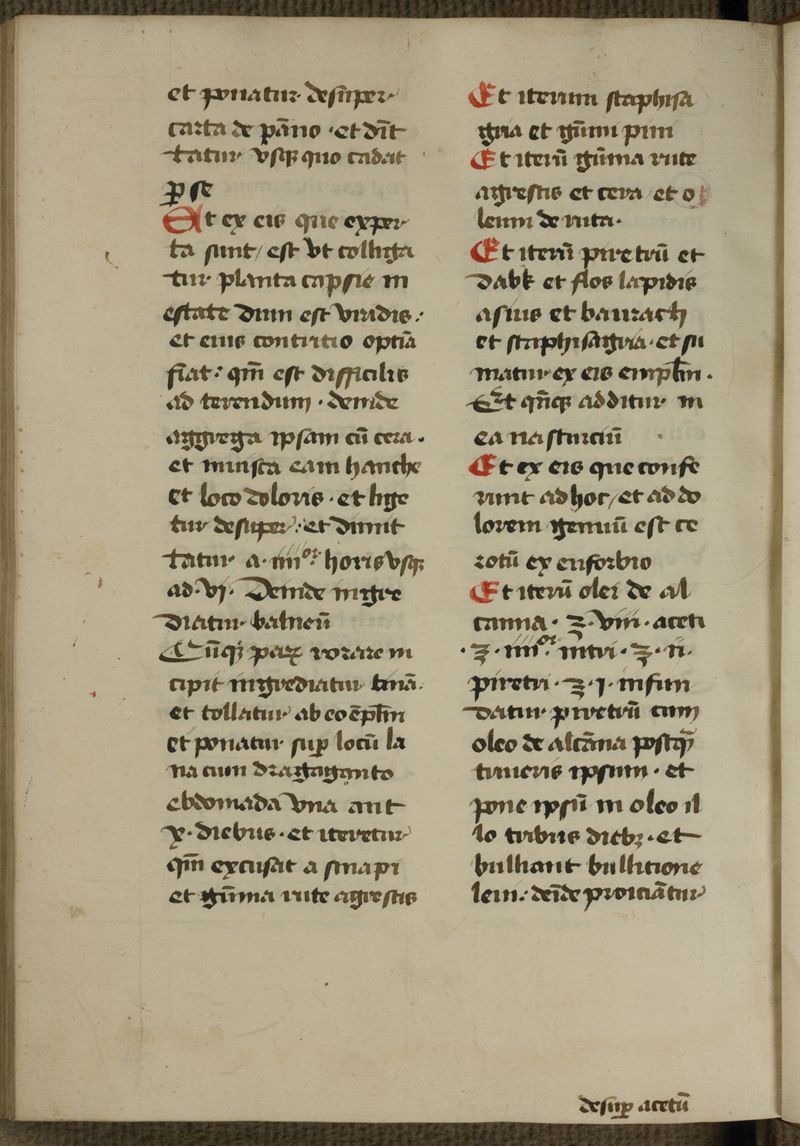 et ponatur desup̄er
carta de pāno · et dīt
tatur vsq̨ quo cadat
ꝑ se
Et ex eis que exper
ta sunt / est vt colliga
tur planta capsie in
estate dum est viridis :
et eius contritio optīa
fiat : qm̄ est difficilis
ad terendum · deinde
aggrega ipsam cū cera ·
et minista eam hanche
et loco doloris · et lige
tur desuper : et dimit
tatur a · iiiior · horis vsq̨
ad · vj · Deinde ingre
diatur balneū
Cūq̨ pax rorare in
cipit ingrediatur bnā ·
et tollatur ab eo ēplm̄
et ponatur suꝑ locū la
na cum dragaganto
ebdomada vna aut
x · diebus · et iteretur
qm̄ excusat a sinapi
et gūma rute agrestis
Et iterum staphisa
gria et gūmi pini
Et iterū gūma rute
agrestis et cera et o
leum de ruta ·
Et iterū piretrū et
dabk et flos lapidis
asius et baurach
et staphisagria · et su
matur ex eis emplm̄ ·
Et qn̄q̨ additur in
ea nasturciū
Et ex eis que confe
runt ad hoc / et ad do
lorem genuū est ce
rotū ex euforbio
Et iterū olei de al
canna · ʒ · viii · aceti
· ʒ · iiiior · mtri · ʒ · ii ·
piretri · ʒ · j · infun
datur piretrū cum
oleo de alcāna postꝙ̄
triueris ipsum · et
pone ipsū in oleo il
lo tribus dieb; · et
bulliant bullitione
leui : deīde proiciātur
desuꝑ acetū